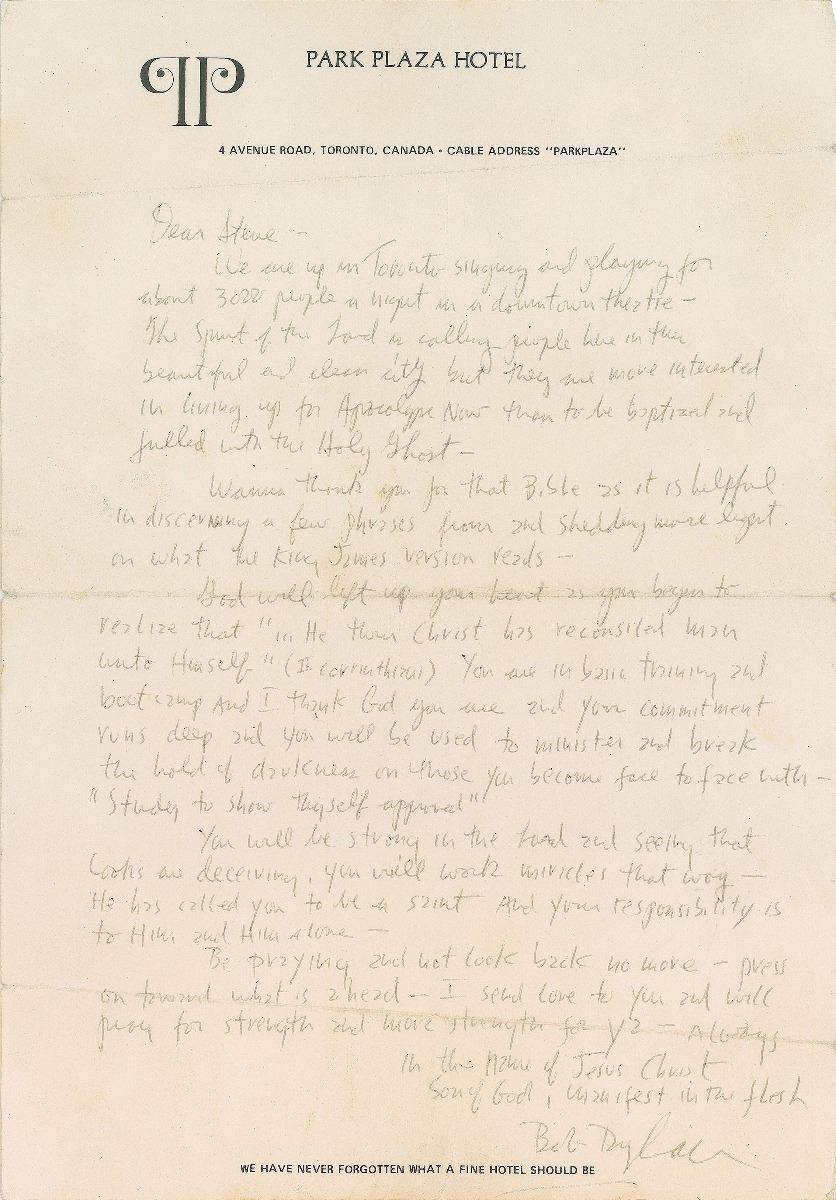 PARK PLAZA HOTEL
4 AVENUE ROAD, TORONTO, CANADA • CABLE ADDRESS "PARKPLAZA"
Dear Steve —
We are up in Toronto singing and playing for
about 3000 people a night in a downtown theatre —
The Spirit of the Lord is calling people here in this
beautiful and clean city but they are more interested
in lining up for Apocalypse Now than to be baptized and
filled with the Holy Ghost —
Wanna thank you for that Bible as it is helpful
in discerning a few phrases from and shedding more light
on what the King James version reads —
God will lift up your heart as you begin to
realize that "in He thru Christ has reconsiled man
unto Himself" (II corinthians) You are in basic training and
bootcamp And I thank God you are and your commitment
runs deep and you will be used to minister and break
the hold of darkness on those you become face to face with —
"Study to show thyself approved"
You will be strong in the Lord and seeing that
Looks are deceiving, you will work miricles that way —
He has called you to be a saint And your responsibility is
to Him and Him alone —
Be praying and not look back no more — press
on toward what is ahead — I send love to you and will
pray for strength and more strength for ya — Always
in the Name of Jesus Christ
Son of God, manifest in the flesh
Bob Dylan
WE HAVE NEVER FORGOTTEN WHAT A FINE HOTEL SHOULD BE